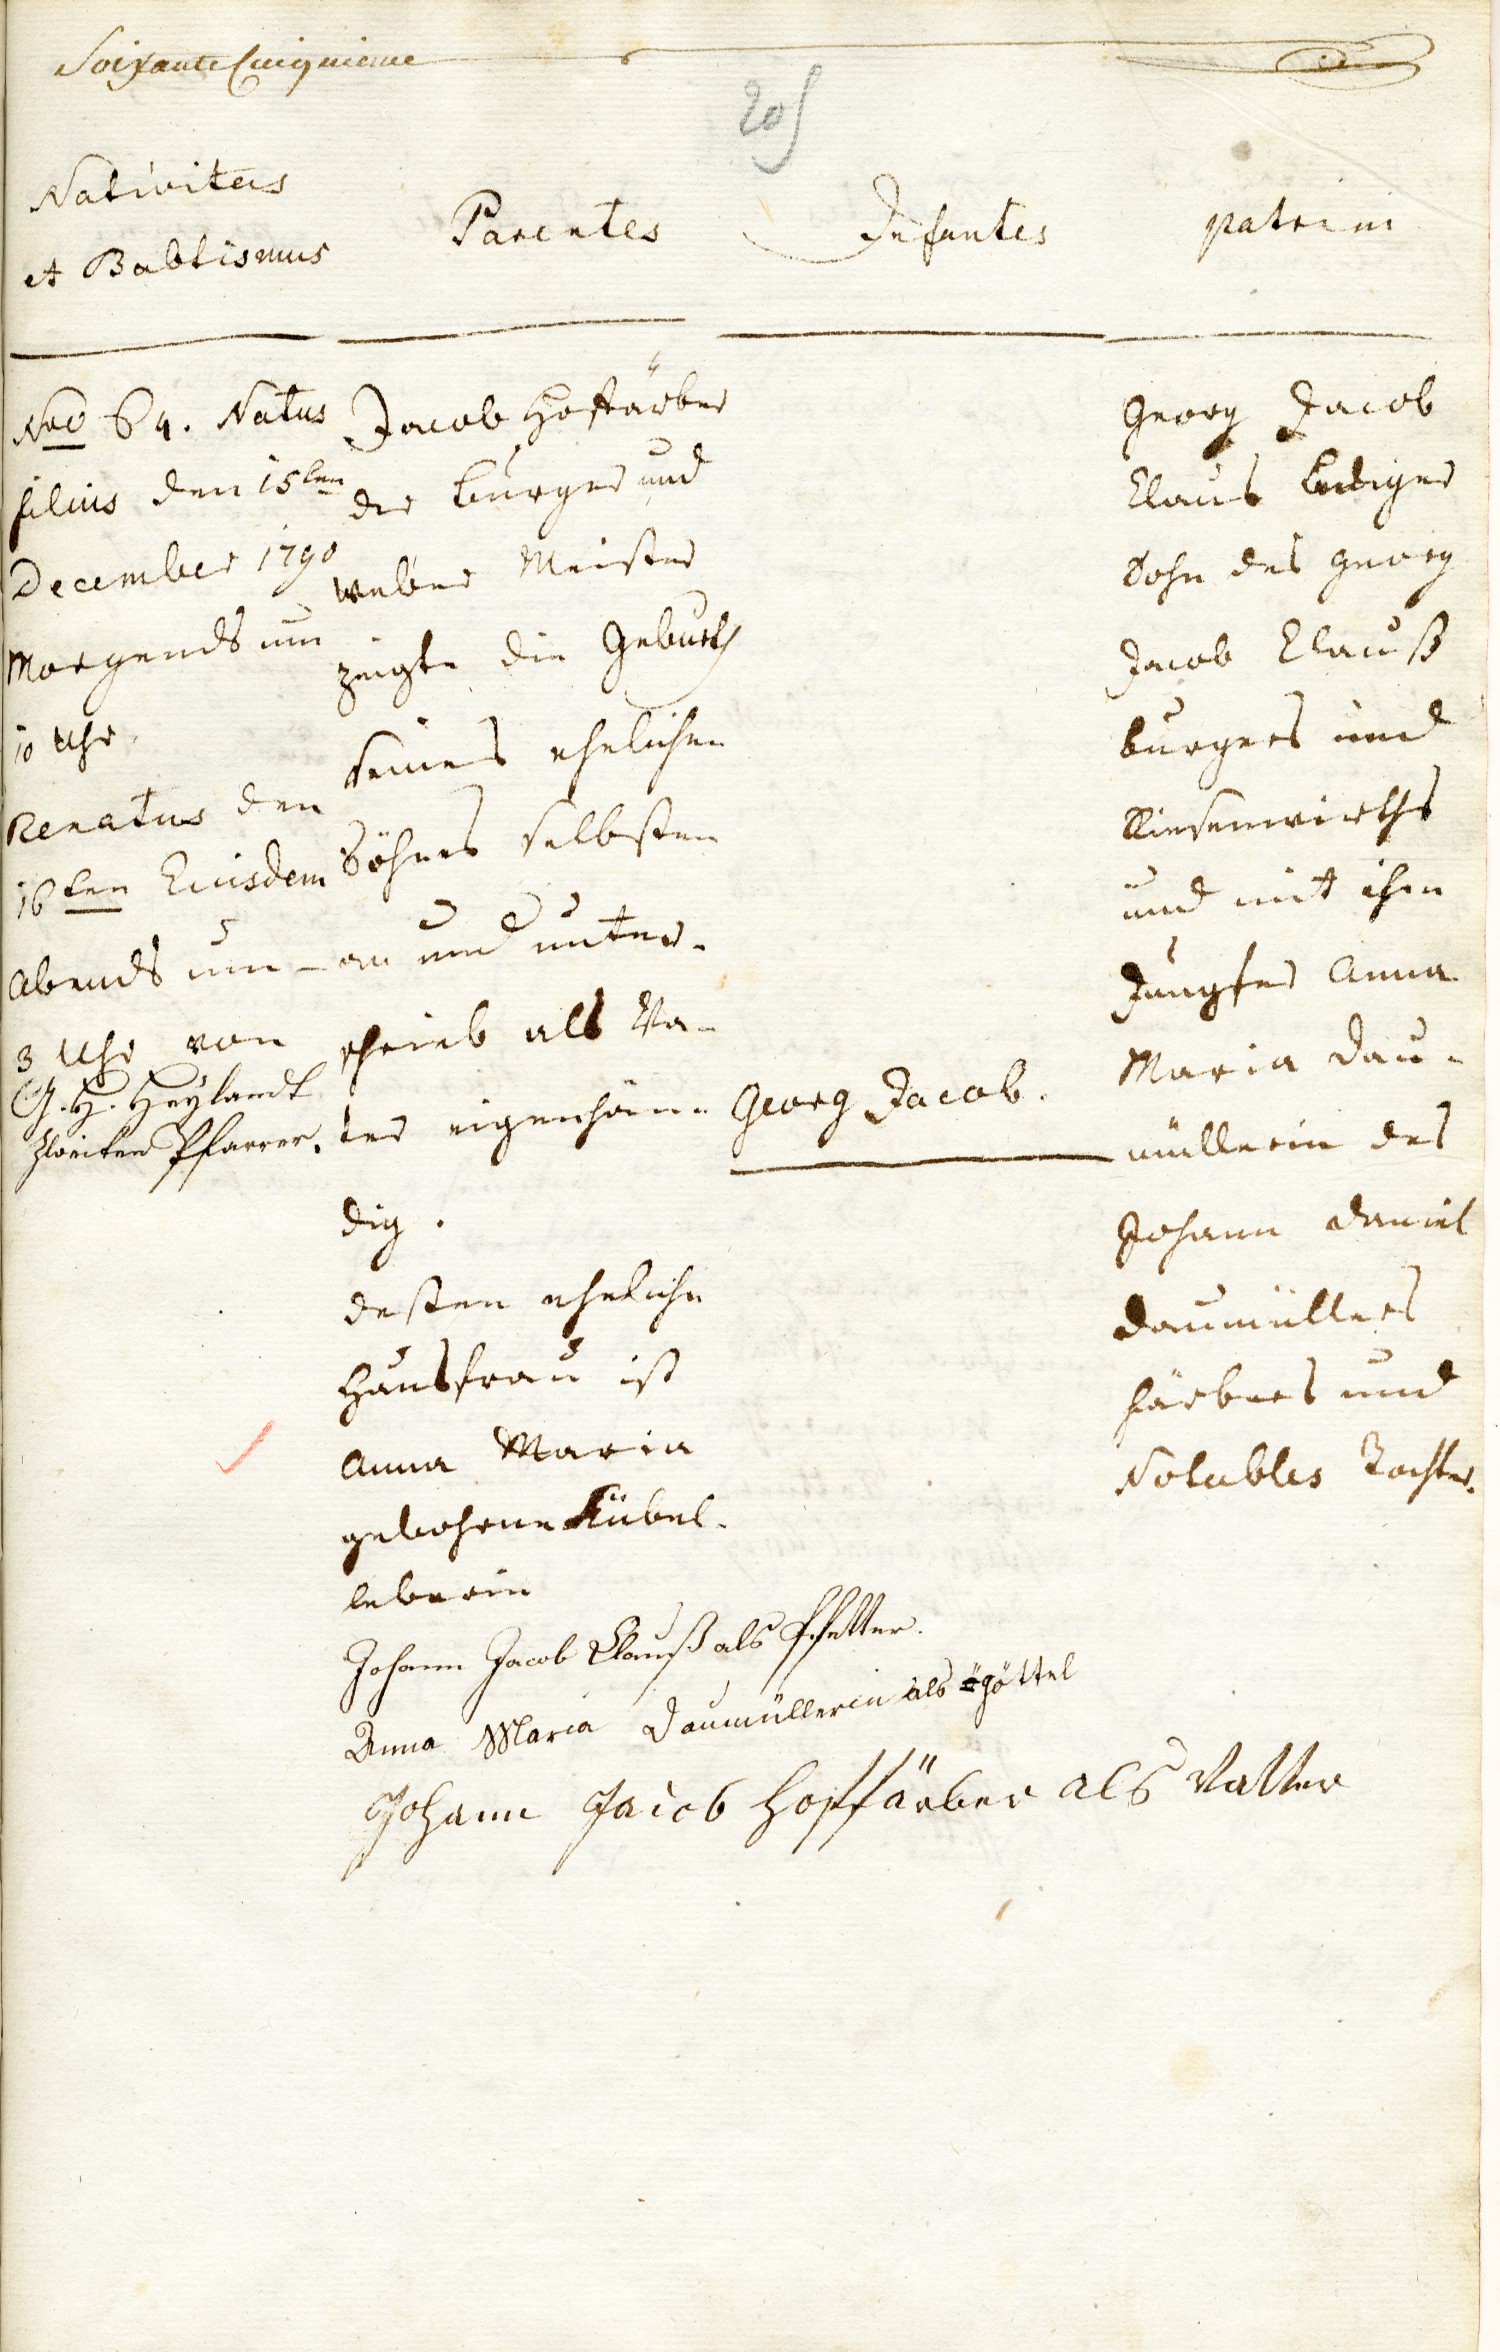 Soixante Cinquieme
205
Nativitas
et Babtismus
Parentes
Infantes
patrini
Nro 64. Natus
filius den 15ten
December 1790
Morgends um
10 Uhr
Renatus den
16ten Eiusdem
Abends um
3 Uhr von
G. H. Heylandt
zweiten Pfarrer.
Jacob Hoffärber
der burger und
weber Meister
zeigte die Geburth
seines ehelichen
Sohnes selbsten
an und unter-
schrieb als Va-
ter eigenhän-
dig.
dessen eheliche
Hausfrau ist
Anna Maria
gebohrne Kübel-
leberin
Georg Jacob.
Georg Jacob
Clauß lediger
Sohn des Georg
Jacob Clauß
burgers und
Riesenwirths
und mit ihm
Jungfer Anna
Maria Dau-
müllerin des
Johann Daniel
Daumüllers
färbers und
Notables Tochter.
Johann Jacob Clauß als Pfetter.
Anna Maria Daumüllerin als göttel
Johann Jacob Hoffärber als Vatter